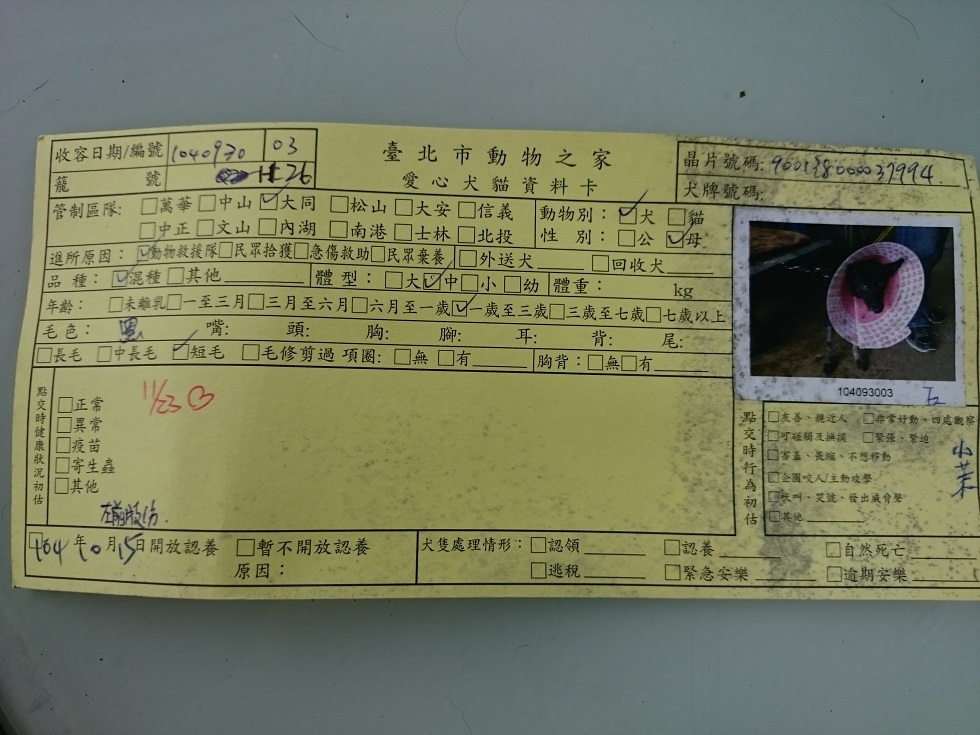 臺北市動物之家
愛心犬貓資料卡
收容日期/編號 1040930 03
籠 號 26
晶片號碼: 900138000037994
犬牌號碼:
管制區隊: □萬華□中山☑大同 □松山□大安□信義
□中正□文山□內湖 □南港□士林□北投
動物別: ☑犬 □貓
性 別: □公☑母
進所原因: ☑動物救援隊□民眾拾獲□急傷救助□民眾棄養 □外送犬 □回收犬
品 種: ☑混種□其他 體 型: □大☑中□小□幼 體重: kg
年齡: □未離乳□一至三月□三月至六月□六月至一歲☑一歲至三歲□三歲至七歲□七歲以上
毛色: 黑 嘴: 頭: 胸: 腳: 耳: 背: 尾:
□長毛 □中長毛 ☑短毛 □毛修剪過 項圈: □無 □有 胸背: □無□有
104093003
點交時健康狀況初估
□正常
□異常
□疫苗
□寄生蟲
□其他
11/23
左前肢傷
點交時行為初估
□友善、親近人 □非常好動、四處觀察
□可碰觸及撫摸 □緊張、緊迫
□害羞、畏縮、不想移動
□企圖咬人/主動攻擊
□吠叫、哭號、發出威脅聲
□其他
小茉
104年10月15日開放認養 □暫不開放認養
原因:
犬隻處理情形: □認領 □認養 □自然死亡
□逃脫 □緊急安樂 □逾期安樂